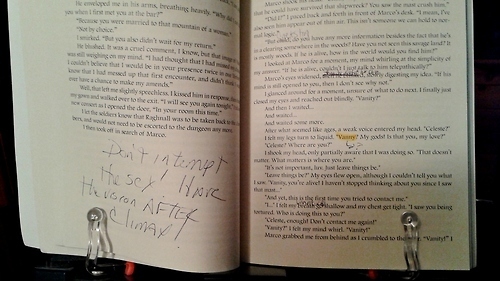 He enveloped me in his arms, breathing heavily. "Why did
you when I first met you at the
"Because you were married to that mountain of a woman."
"Not by choice."
I smirked. "But you also didn't wait for my return."
He blushed. It was a cruel comment, I know, but that
was still weighing on my mind. "I had thought that I had missed
I couldn't believe that I would be in your presence twice in a
know that I had messed up that first encounter, and didn't think
ever have a chance to make my amends."
Well, that left me slightly speechless. I kissed him in response,
my gown and walked over to the exit. "I will see you again tonight,"
new consort as I opened the door, "in your room this time."
I let the soldiers know that Ragknall was to be taken back to the
bers, and would not need to be escorted to the dungeon any more.
I then took off in search of Marco.
Don't interrupt
the sex! HAVE
the vision AFTER
Climax!
that he would have survived that shipwreck? You saw the mast crush him."
"Did I?" I paced back and teeth in front of Marco's desk. "I mean, I've
also seen him appear out of thin air. This isn't someone we can hold to
"But Majel, do you have any more information besides the fact that he's
in a clearing somewhere in the woods? Have you not seen this savage land? It
is mostly woods. If he is alive, how in the world would you find him?"
I looked at Marco for a moment, my mind whirling at the simplicity of
my answer. "If he is alive, couldn't I not talk to him telepathically?"
Marco's eyes widened, digesting my idea. "If his
mind is still opened to you, then I don't see why not."
I glanced around for a moment, unsure of what to do next. I finally just
closed my eyes and reached out blindly. "Vanity?"
And then I waited...
And waited...
And waited some more.
After what seemed like ages, a weak voice entered my head. "Celeste?"
I felt my legs turn to liquid. "Vanity? My gods! Is that you, my love?"
"Celeste? Where are you?"
I shook my head, only partially aware that I was doing so. "That doesn't
matter. What matters is where you are."
"It's not important, luv. Just leave things be."
"Leave things be?" My eyes flew open, although I couldn't tell you what
I saw. "Vanity, you're alive! I haven't stopped thinking about you since I saw
that mast..."
"And yet, this is the first time you tried to contact me."
"I..." I felt my shallow and my chest get tight. "I saw you being
tortured. Who is doing this to you?"
"Celeste, enough! Don't contact me again!"
"Vanity?" I felt my mind whirl. "Vanity!"
Marco grabbed me from behind as I crumbled to the "Vanity!" I